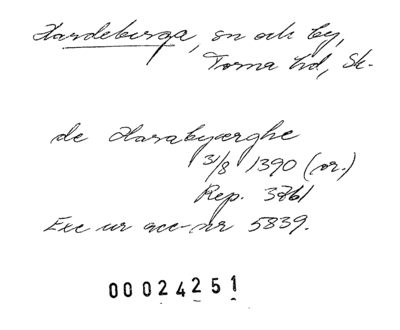 Hardeberga, sn och by,
Torna hd, Sk.
de Harabyærghe
31/8 1390 (or.)
Rep. 3761
Exc ur acc-nr 5839.
00024251